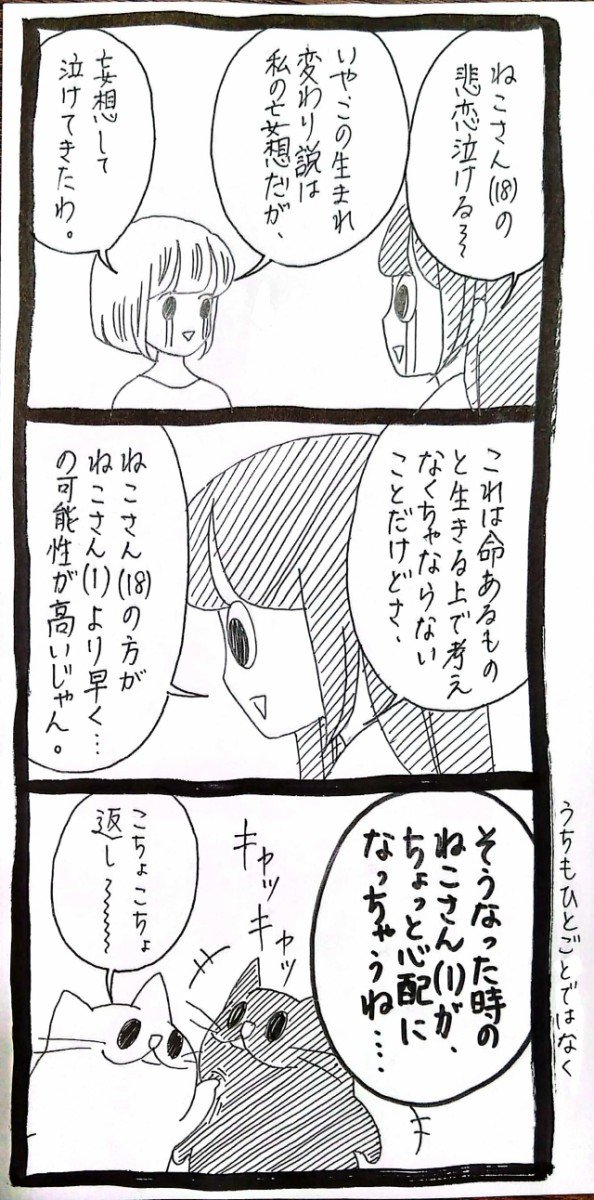 ねこさん(18)の
悲恋泣ける〜〜
いや、この生まれ
変わり説は
私の妄想だが、
妄想して
泣けてきたわ。
これは命あるもの
と生きる上で考え
なくちゃならない
ことだけどさ、
ねこさん(18)の方が
ねこさん(1)より早く…
の可能性が高いじゃん。
そうなった時の
ねこさん(1)が、
ちょっと心配に
なっちゃうね….
キャッ
キャッ
こちょこちょ
返し〜〜〜
うちもひとごとではなく